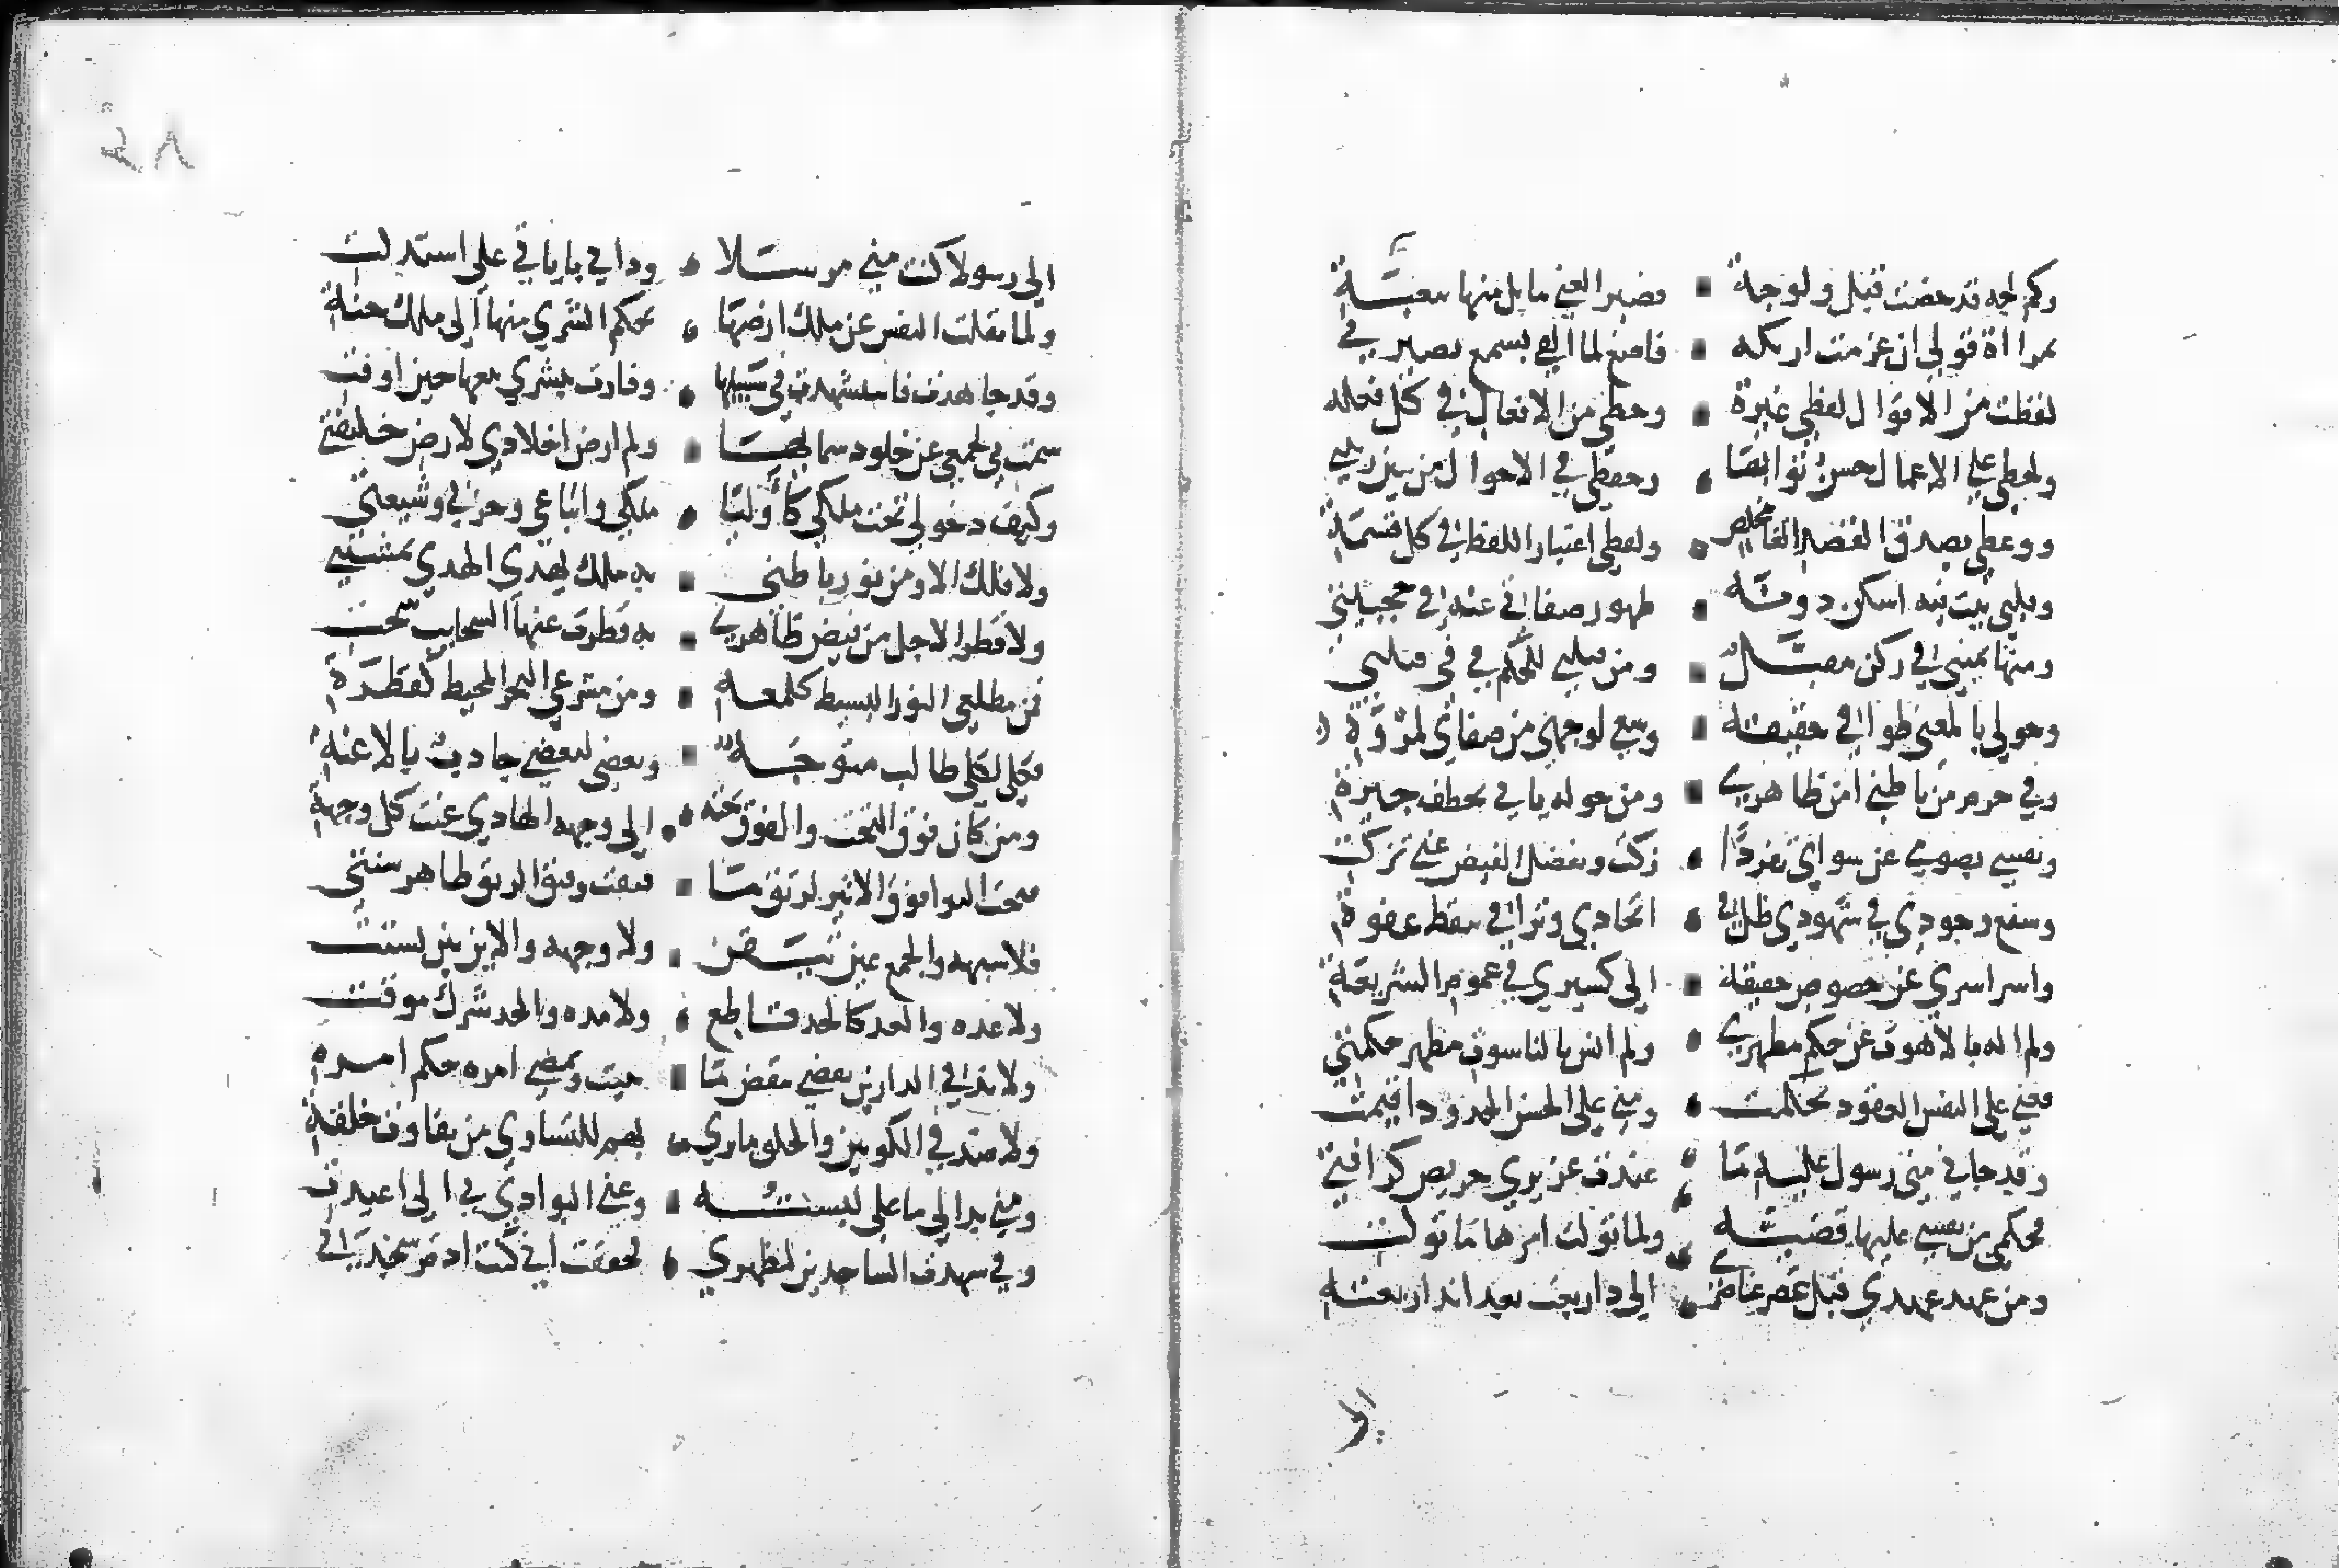 وكم لجه قد خضت قبل ولوجه فقير الغنى ما بل منها بنغبة
بمراة قولي ان عزمت اريكه فاصغ لما القي بسمع بصيرتي
لفظت من الاقوال لفظي عبرة وحظي من الافعال في كل فعلة
ولحظي على الاعمال حسن ثوابها وحفظي في الاحوال من شين ريبتي
ووعظي بصدق القصد القا مخلص ولفظي اعتبار اللفظ في كل قسمة
وقلبي بيت فيه اسكن دونه ظهور صفاتي عنه في حجبيتي
ومنها يميني في ركن مقبل ومن قبلتي للحكم في في قبلتي
وحولي بالمعنى طوافي حقيقة وسعي لوجهي من صفائي لمروة
وفي حرم من باطني امن ظاهري ومن حوله يابي تخطف جيرة
ونفسي بصومي عن سواي تفردا زكت وبفضل الفيض عني تزكت
وشفع وجودي في شهودي ظل في اتحادي وترا في تيقظ غفوة
واسرا سري عن خصوص حقيقة الي كسيري في عموم الشريعة
ولم اله بالاهوت عن حكم مظهري ولم انس بالناسوت مظهر حكمتي
فعني على النفس العقود تحكمت ومني على الحس الحدود اقيمت
وقد جاني مني رسول عليه ما عنت عزيز بي حريص لرافة
بحكمي من نفسي عليها قضيته ولما تولت امرها ما تولت
ومن عهد عهدي قبل عصر عناصري الي دار بعث بعد انذار بعثة
الي
٨٤
الي رسولا كنت مني مرسلا وذاتي باياتي علي استدلت
ولما نقلت النفس عن ملك ارضها بحكم الشري منها الي ملك جنة
وقد جاهدت فاستشهدت في سبيلها وفازت ببشري بيعها حين اوفت
سمت بي لجمعي عن خلود سمائها ولم ارض اخلادي لارض خليفتي
وكيف دخولي تحت ملكي كاوليا ملكي واتباعي وحزبي وشيعتي
ولا فلك الا ومن نور باطني به ملك يهدي الهدي بمشيتي
ولا قطر الا حل من فيض ظاهري به قطرة عنها السحايب سحت
فمن مطلعي النور البسيط كلمعة ومن مشرعي البحر المحيط كقطرة
فكلي لكلي طالب متوجه وبعضي لبعضي جاذب بالاعنة
ومن كان فوق التحت والفوق تحته الي وجهه الهادي عنت كل وجهة
فتحت الثرا فوق الاثير لرتق ما فتقت وفتق الرتق ظاهر سنتي
فلا شبهه والجمع عين تيقن ولا وجهه والاين بين تشتت
ولا عده والعد كالحد قاطع ولا مده والحد شرك موقت
ولا ند في الدارين يقضي بنقض ما بنيت ويمضي امره حكم امره
ولا ضد في الكونين والخلق ما تري بهم للتساوي من تفاوت خلقة
ومني بدا لي ما علي لبسته وعني البوادي بي الي اعيدت
وفي شهدت الساجدين لمظهري فحققت اني كنت ادم سجدتي